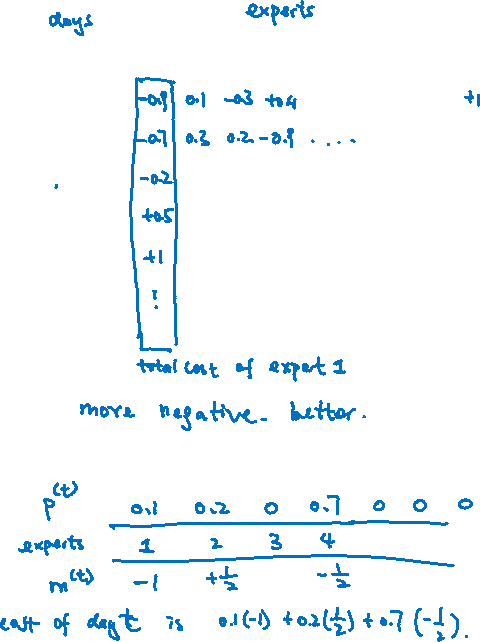 days experts
-0.9 0.1 -0.3 +0.4 +1
-0.7 0.3 0.2 -0.9 ....
-0.2
+0.5
+1
⋮
total cost of expert 1
more negative. better.
p^(t) 0.1 0.2 0 0.7 0 0 0
experts 1 2 3 4
m^(t) -1 +1/2 -1/2
cost of day t is 0.1(-1) +0.2(1/2) +0.7(-1/2).